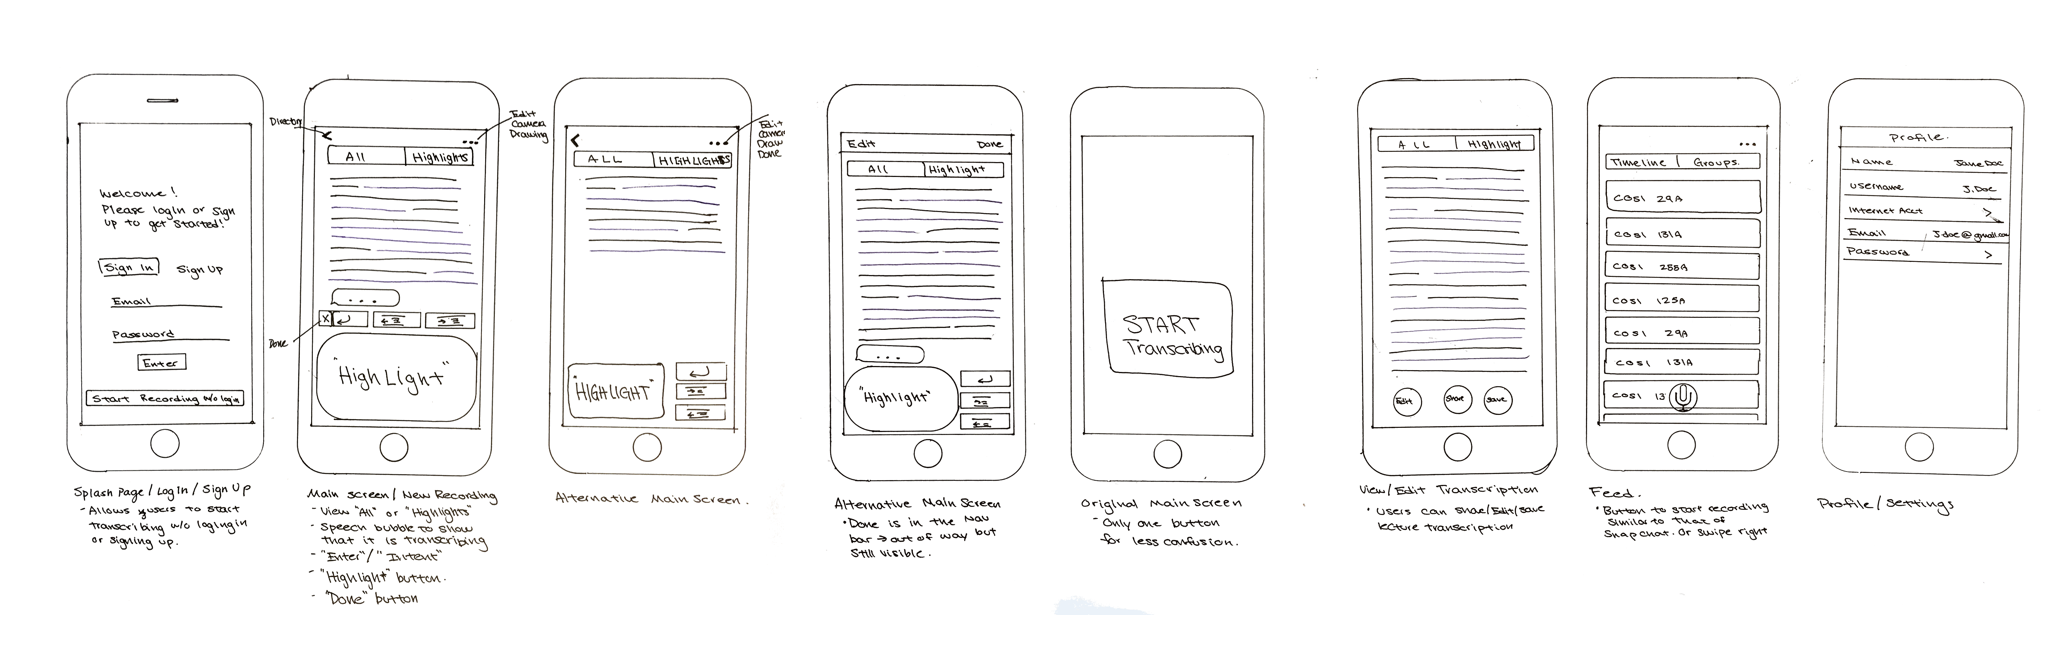 Welcome!
Please login or sign
up to get started!
Sign In
Sign Up
Email
Password
Enter
Start Recording w/o login
Splash Page / Log In / Sign Up
- Allows users to start
transcribing w/o logingin
or signing up.
Directory
Edit
Camera
Drawing
All
Highlights
...
X
Done
"HighLight"
Main screen / New Recording
- View "All" or "Highlights"
- Speech bubble to show
that it is transcribing
- "Enter"/"Intent"
- "Highlight" button.
- "Done" button
Edit
Camera
Draw
Done
ALL
HIGHLIGHTS
"HIGHLIGHT"
Alternative Main Screen.
Edit
Done
All
Highlight
...
"Highlight"
Alternative Main Screen
• Done is in the Nav
bar → out of way but
still visible.
START
Transcribing
Original Main Screen
- Only one button
for less confusion.
ALL
Highlight
Edit
Share
Save
View/Edit Transcription
• Users can share/Edit/save
lecture transcription
Timeline | Groups.
COSI 29A
COSI 131A
COSI 288A
COSI 125A
COSI 29A
COSI 131A
COSI 13
Feed.
• Button to start recording
similar to that of
snapchat. Or swipe right
Profile.
Name Jane Doe
Username J.Doe
Internet Acct >
Email J.doe@gmail.com
Password >
Profile/Settings